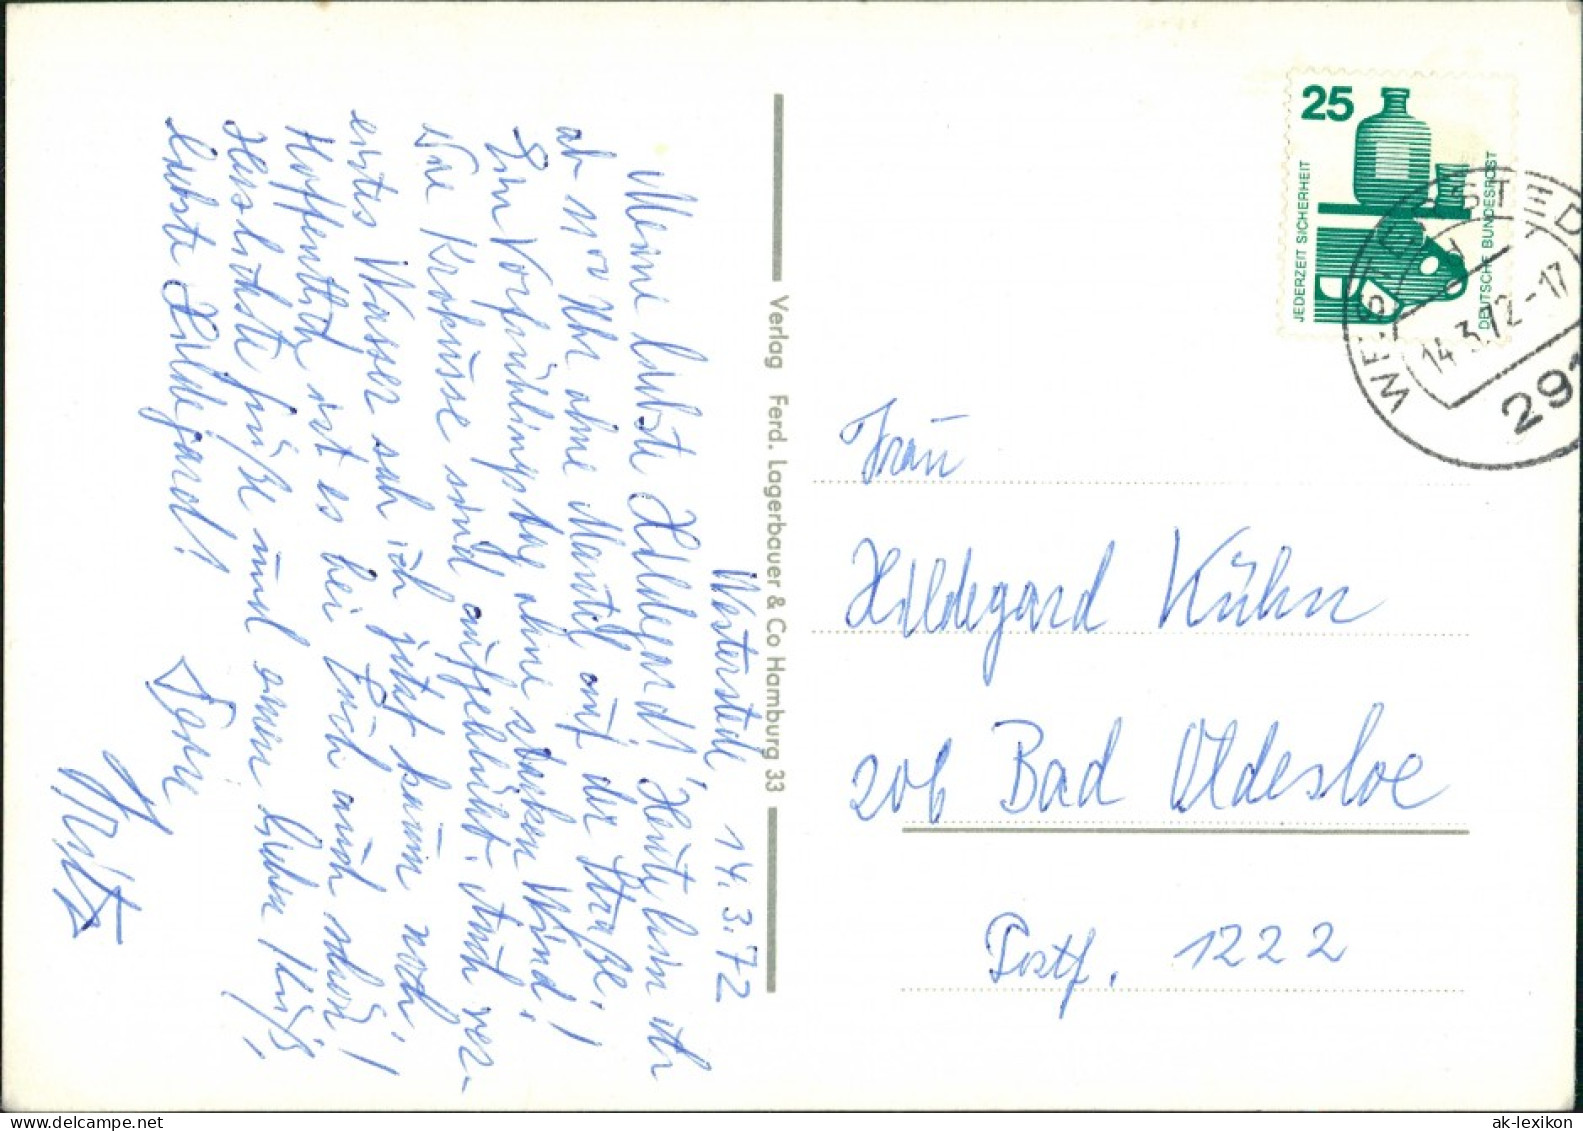 Westerstede, 14.3.72
Meine liebste Hildegard! Heute bin ich
ab 11 Uhr ohne Mantel auf der Straße.
Ein Vorfrühlingstag ohne starken Wind!
Die Krokusse sind aufgeblüht. Auch
erstes Wasser sah ich jetzt kaum noch.
Hoffentlich ist es bei Euch auch schön!
Herzlichste Grüße und einen lieben Kuß,
liebste Hildegard!
Dein
Fritz
Verlag Ferd. Lagerbauer & Co Hamburg 33
25
JEDERZEIT SICHERHEIT
DEUTSCHE BUNDESPOST
WESTERSTEDE
d
14.3.72-17
291
Frau
Hildegard Kühn
206 Bad Oldesloe
Postf. 1222
ak-lexikon